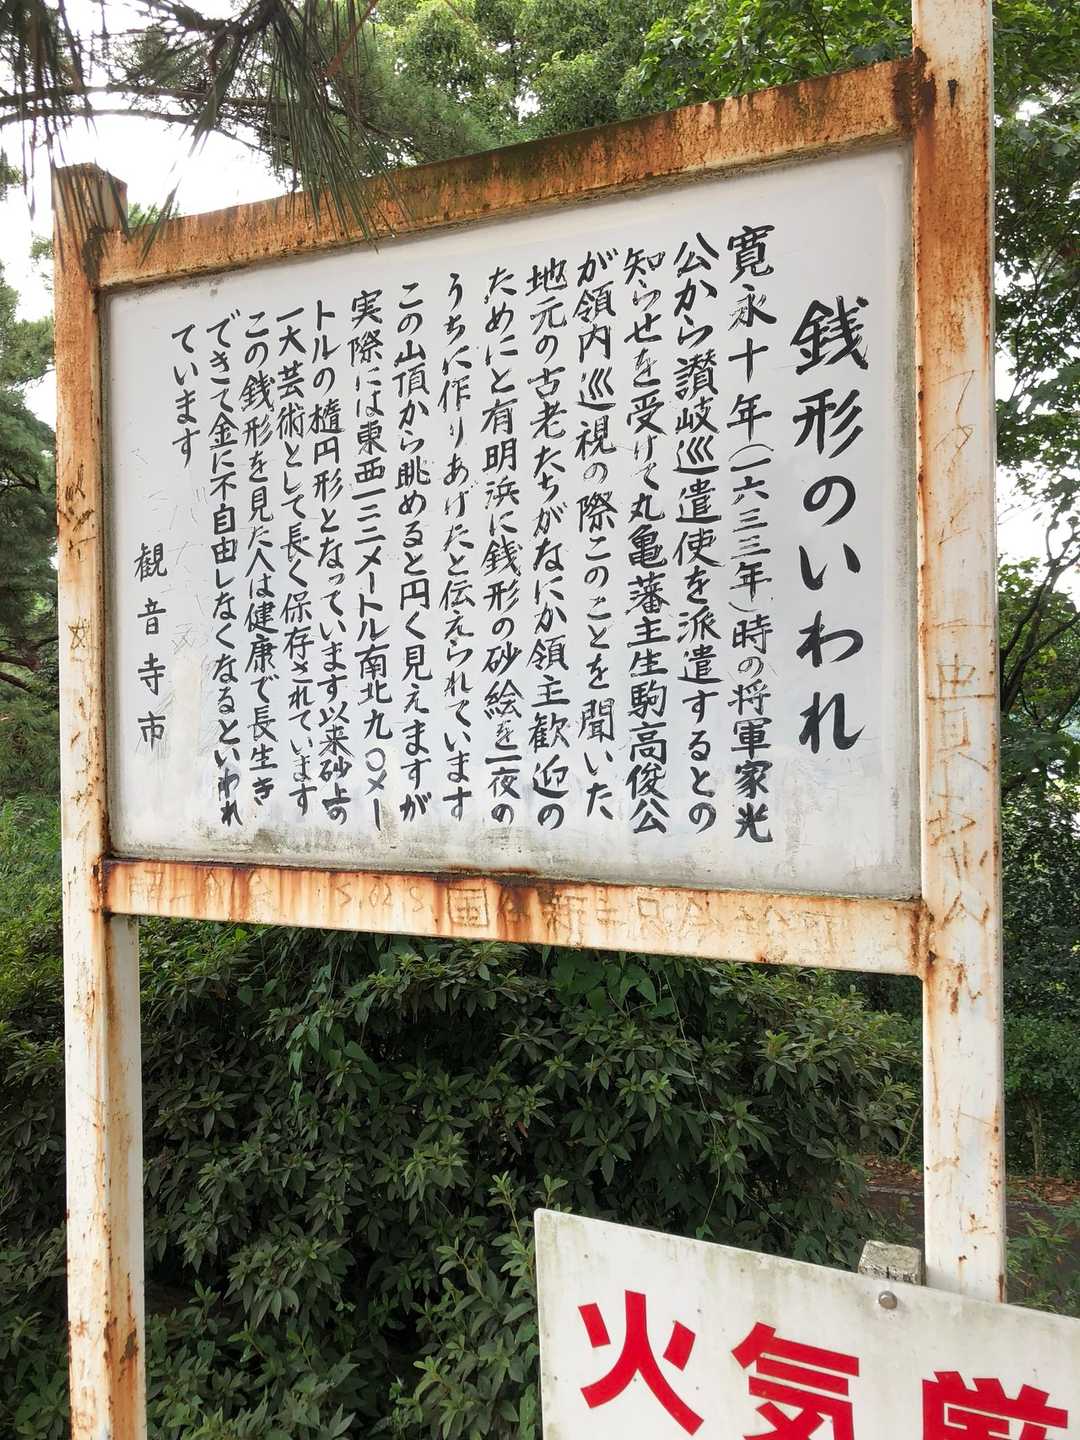 銭形のいわれ
寛永十年(一六三三年)時の将軍家光
公から讃岐巡遣使を派遣するとの
知らせを受けて丸亀藩主生駒高俊公
が領内巡視の際このことを聞いた
地元の古老たちがなにか領主歓迎の
ためにと有明浜に銭形の砂絵を一夜の
うちに作りあげたと伝えられています
この山頂から眺めると円く見えますが
実際には東西一二二メートル南北九〇メー
トルの楕円形となっています以来砂上の
一大芸術として長く保存されています
この銭形を見た人は健康で長生き
できて金に不自由しなくなるといわれ
ています
観音寺市
火気厳